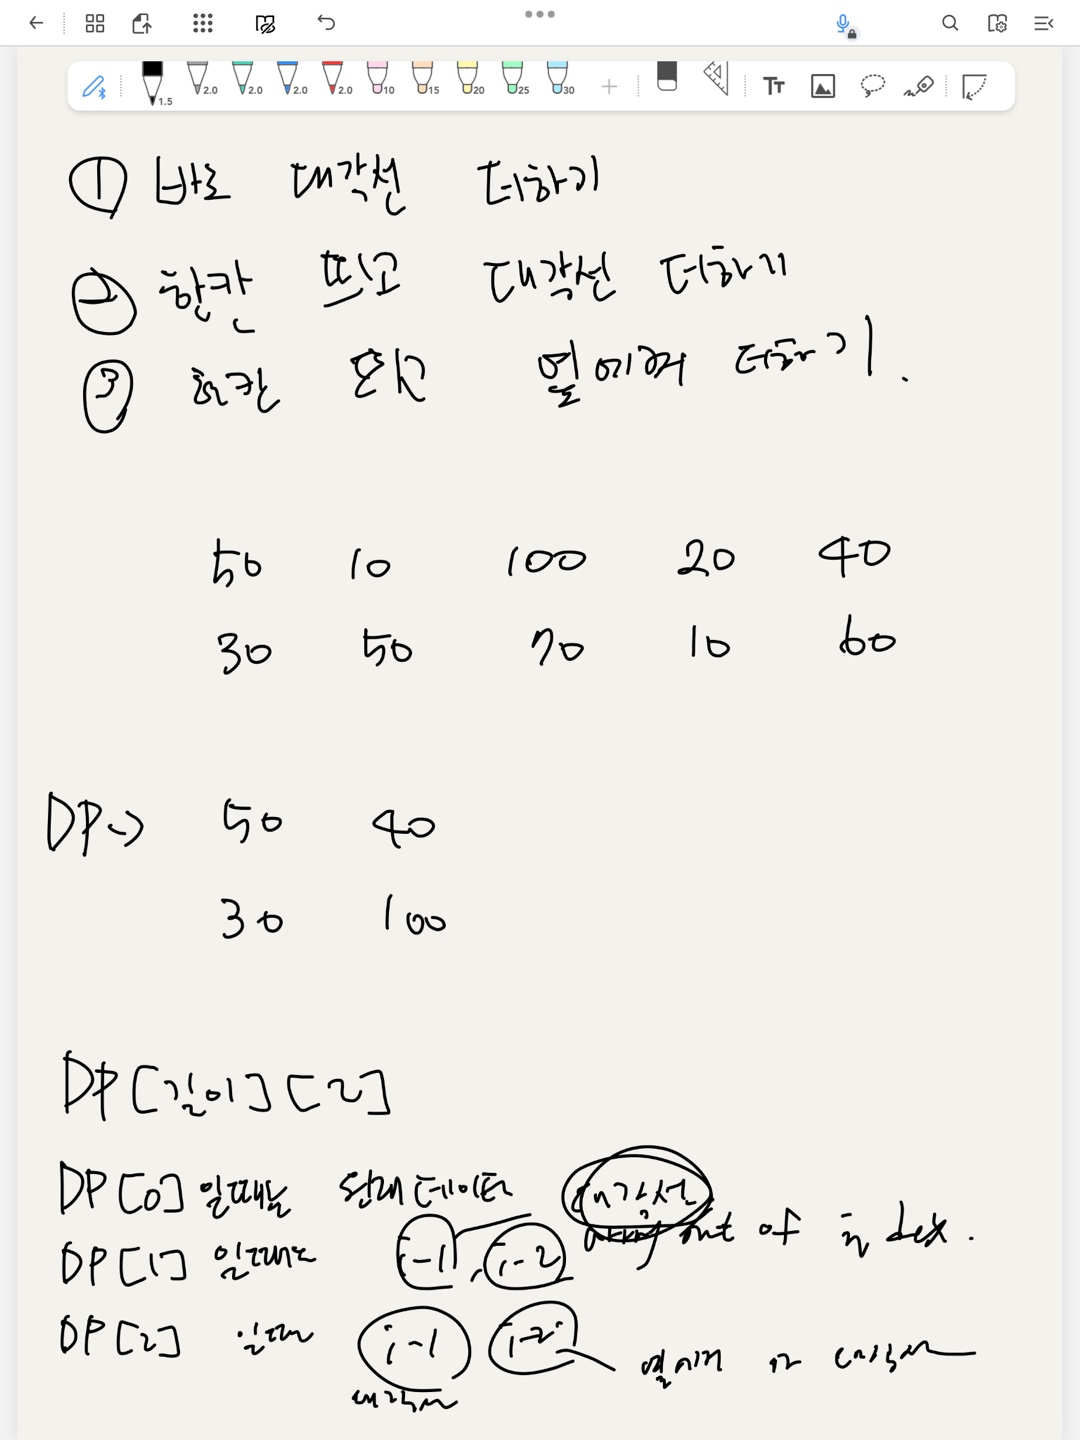 1.5 2.0 2.0 2.0 2.0 10 15 20 25 30 Tт
① 바로 대각선 더하기
② 한칸 뜨고 대각선 더하기
③ 한칸 뜨고 옆에꺼 더하기.
50 10 100 20 40
30 50 70 10 60
DP-> 50 40
30 100
DP[길이][2]
DP[0] 일때는 현재 데이터 대각선
DP[1] 일때는 i-1, i-2 array out of index.
DP[2] 일때 i-1 i-2
대각선